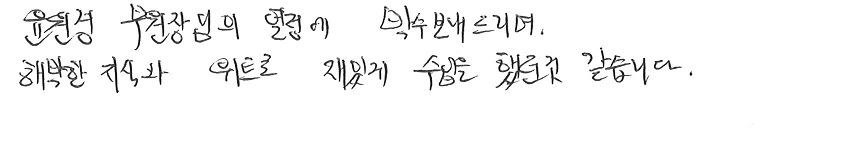 부원장님의 열정에 박수보내드리며.
해박한 지식과 위트로 재밌게 수업을 했던것 같습니다.